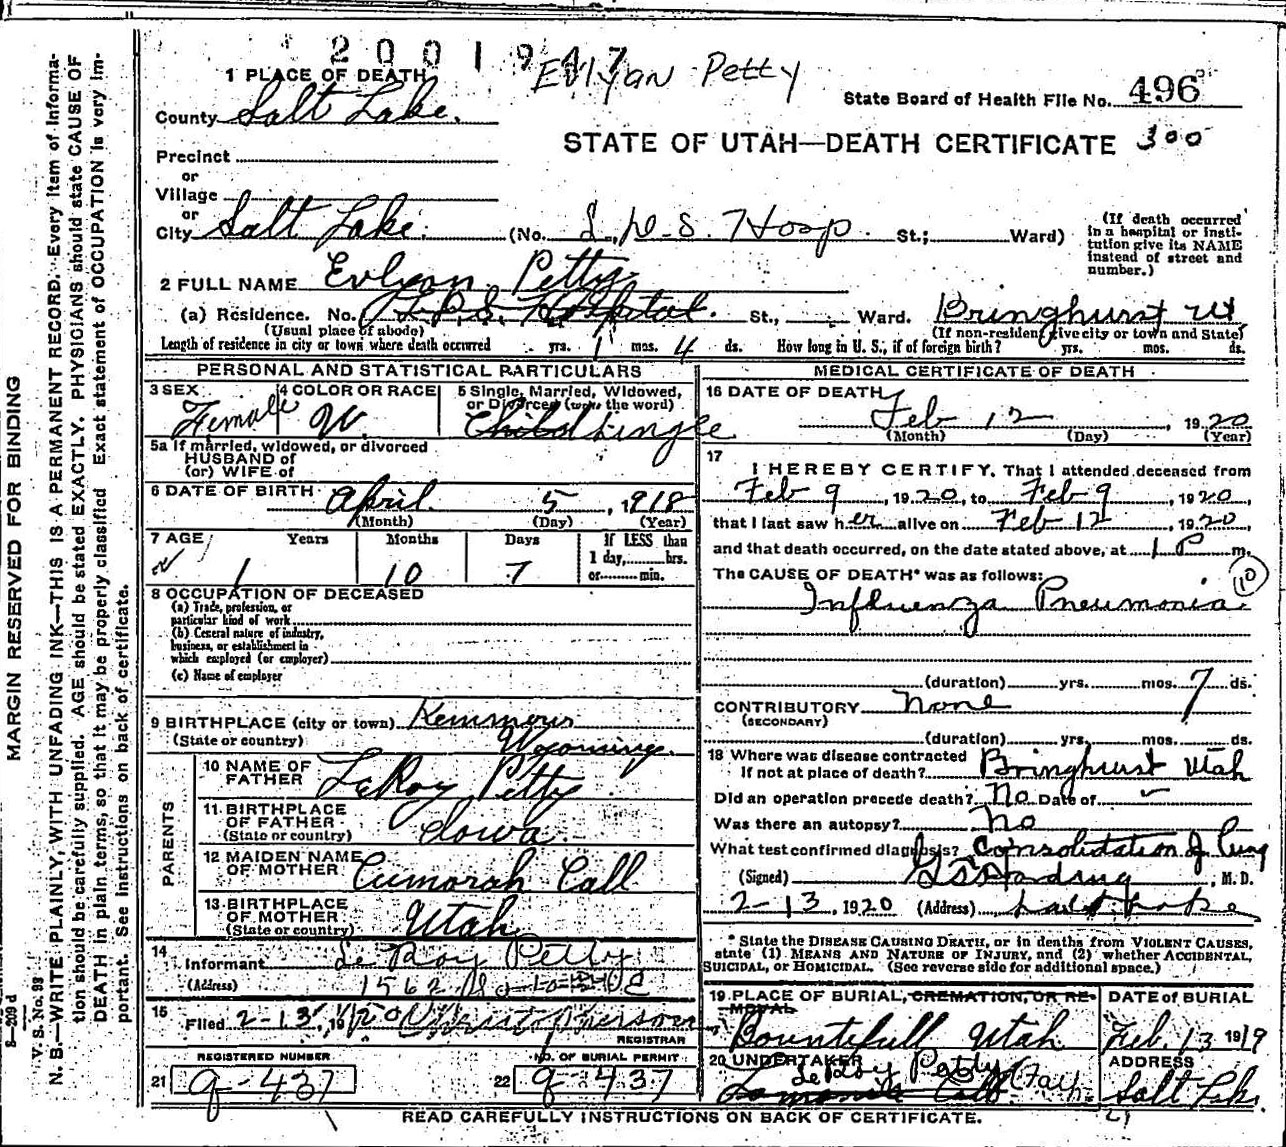 2001947
Evlyan Petty
1 PLACE OF DEATH
County Salt Lake.
State Board of Health File No. 496
STATE OF UTAH—DEATH CERTIFICATE 300
Precinct
or
Village
or
City Salt Lake. (No. L.D.S. Hosp. St.; Ward)
(If death occurred in a hospital or institution give its NAME instead of street and number.)
2 FULL NAME Evlyan Petty
(a) Residence. No. L.D.S. Hospital. St., Ward. Bringhurst Ut
(Usual place of abode) (If non-resident give city or town and State)
Length of residence in city or town where death occurred yrs. 1 mos. 4 ds. How long in U. S., if of foreign birth? yrs. mos. ds.
PERSONAL AND STATISTICAL PARTICULARS
3 SEX Female
4 COLOR OR RACE W.
5 Single, Married, Widowed, or Divorced (write the word) Child Single
5a If married, widowed, or divorced
HUSBAND of
(or) WIFE of
6 DATE OF BIRTH April 5, 1918
(Month) (Day) (Year)
7 AGE Years Months Days If LESS than
1 day, hrs.
or min.
1 10 7
8 OCCUPATION OF DECEASED
(a) Trade, profession, or
particular kind of work
(b) General nature of industry,
business, or establishment in
which employed (or employer)
(c) Name of employer
9 BIRTHPLACE (city or town) Kemmeris
(State or country) Wyoming.
PARENTS
10 NAME OF FATHER LeRoy Petty
11 BIRTHPLACE OF FATHER (State or country) Iowa.
12 MAIDEN NAME OF MOTHER Cumorah Call
13 BIRTHPLACE OF MOTHER (State or country) Utah
14 Informant Le Roy Petty
(Address) 1562
15 Filed 2-13, 1920 Christopherson
REGISTRAR
REGISTERED NUMBER
21 g-437
NO. OF BURIAL PERMIT
22 g-437
MEDICAL CERTIFICATE OF DEATH
16 DATE OF DEATH Feb 12, 1920
(Month) (Day) (Year)
17
I HEREBY CERTIFY, That I attended deceased from
Feb 9, 1920, to Feb 9, 1920,
that I last saw her alive on Feb 12, 1920,
and that death occurred, on the date stated above, at 1 P m.
The CAUSE OF DEATH* was as follows:
10
Influenza Pneumonia.
(duration) yrs. mos. 7 ds.
CONTRIBUTORY None
(SECONDARY)
(duration) yrs. mos. ds.
18 Where was disease contracted
If not at place of death? Bringhurst Utah
Did an operation precede death? No Date of
Was there an autopsy? No
What test confirmed diagnosis? Consolidation of Lung
(Signed) , M. D.
2-13, 1920 (Address) Salt Lake
* State the DISEASE CAUSING DEATH, or in deaths from VIOLENT CAUSES,
state (1) MEANS AND NATURE OF INJURY, and (2) whether ACCIDENTAL,
SUICIDAL, or HOMICIDAL. (See reverse side for additional space.)
19 PLACE OF BURIAL, CREMATION, OR REMOVAL
Bountifull Utah
DATE of BURIAL
Feb. 13 1919
20 UNDERTAKER
Le Roy Petty
ADDRESS
Salt Lake.
READ CAREFULLY INSTRUCTIONS ON BACK OF CERTIFICATE.
MARGIN RESERVED FOR BINDING
N. B.—WRITE PLAINLY, WITH UNFADING INK—THIS IS A PERMANENT RECORD. Every item of information should be carefully supplied. AGE should be stated EXACTLY. PHYSICIANS should state CAUSE OF DEATH in plain terms, so that it may be properly classified. Exact statement of OCCUPATION is very important. See instructions on back of certificate.
V. S. No. 93
S—209 d